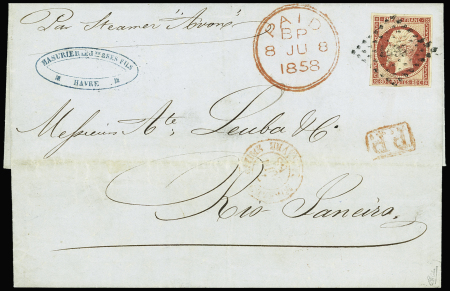 Par Steamer "Avon"
MASURIER LE JNE & SES FILS
HAVRE
PAID
BP
8 JU 8
1858
Messieurs Ate. Leuba & C.
P.P.
Rio Janeiro